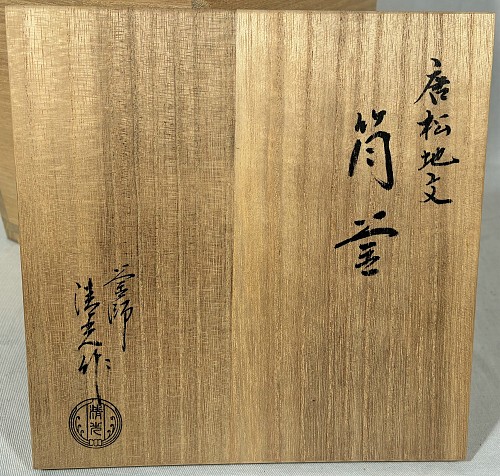 唐松地文
筒釜
釜師
清光作
清光